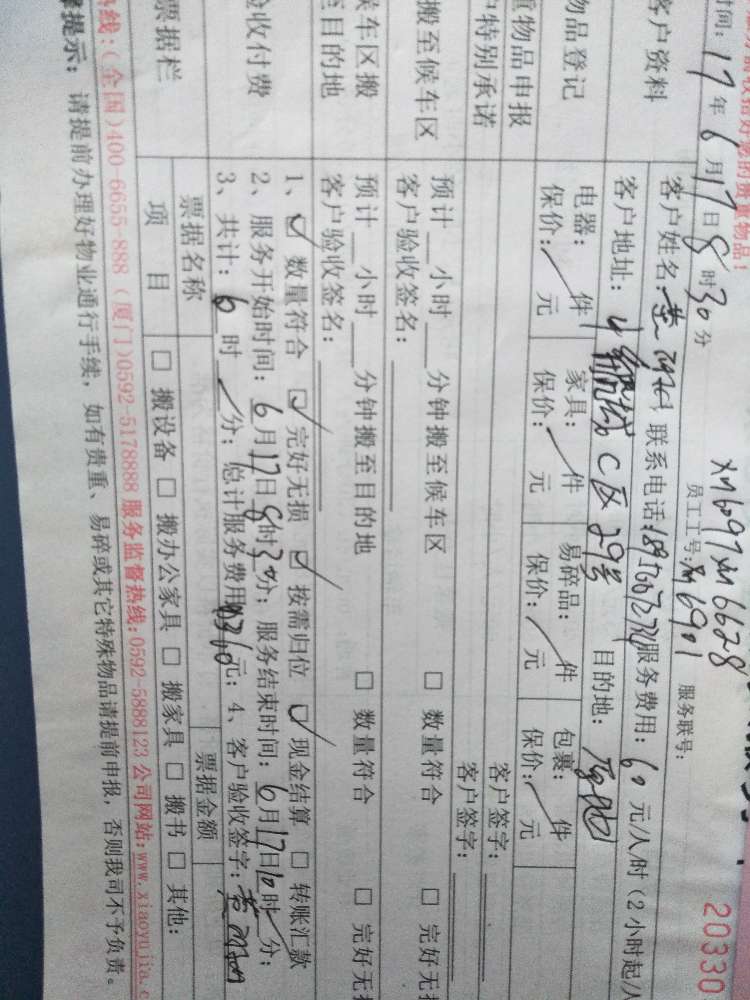 收拾好您的贵重物品!
20330
时间: 17年6月17日8时30分
员工工号: XM6097 XM6628
XM6901
服务联号:
客户资料
客户姓名: 联系电话: 服务费用: 60元/人/时 (2小时起/
客户地址: C区29号 目的地: 原地
物品登记
电器: 件 家具: 件 易碎品: 件 包裹: 件
保价: 元 保价: 元 保价: 元 保价: 元
重物品申报 客户签字:
户特别承诺 客户签字:
搬至候车区
预计 小时 分钟搬至候车区 □ 数量符合 □ 完好无损
客户验收签名:
候车区搬至目的地
预计 小时 分钟搬至目的地 □ 数量符合 □ 完好无损
客户验收签名:
验收付费
1、☑ 数量符合 ☑ 完好无损 ☑ 按需归位 ☑ 现金结算 □ 转账汇款
2、服务开始时间: 6月17日8时30分; 服务结束时间: 6月17日10时 分;
3、共计: 6时 分; 总计服务费用 360元; 4、客户验收签字:
票据栏
票据名称 票据金额
项目 □ 搬设备 □ 搬办公家具 □ 搬家具 □ 搬书 □ 其他:
热线: (全国)400-6655-888 (厦门)0592-5178888 服务监督热线:0592-5888123 公司网站: www.xiaoyujia.c
提示: 请提前办理好物业通行手续, 如有贵重、易碎或其它特殊物品请提前申报, 否则我司不予负责。